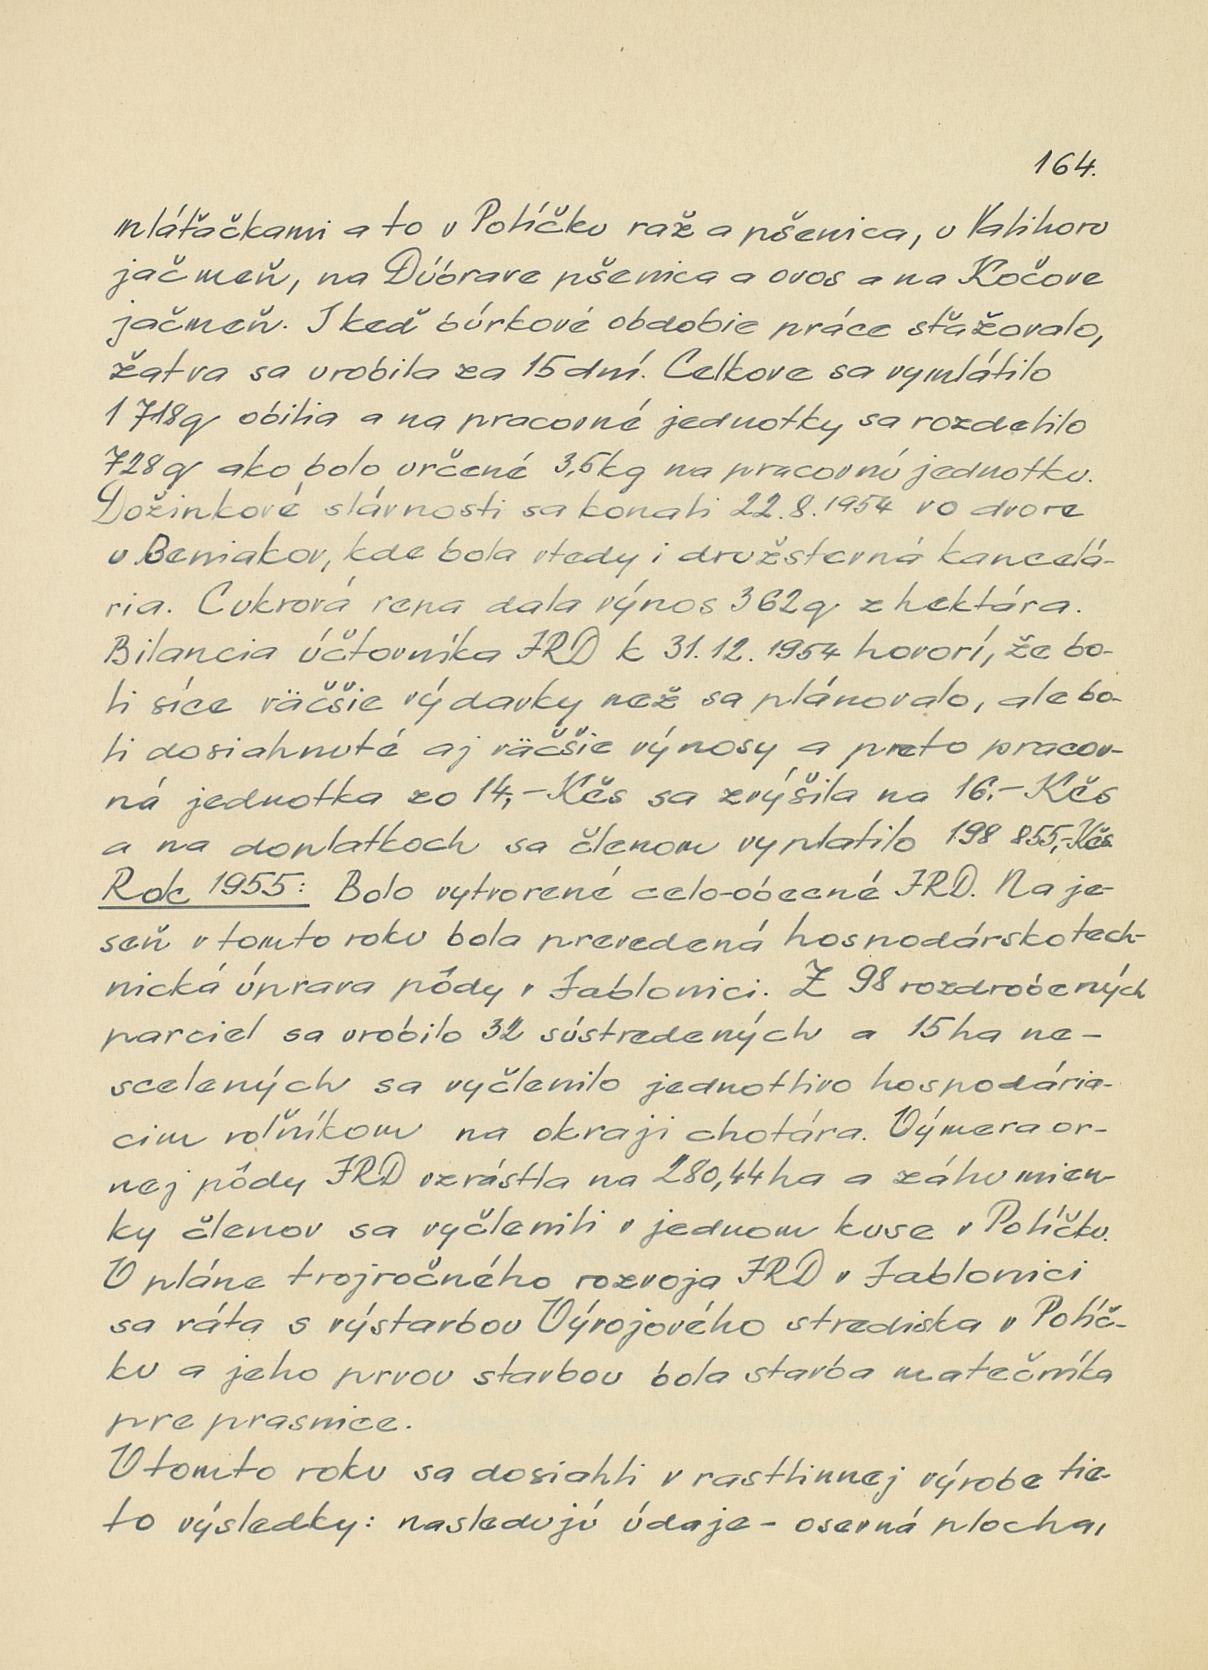 164.
mláťačkami a to v Políčku raž a pšenica, u Valihoro
jačmeň, na Dúbrave pšenica a ovos a na Kočove
jačmeň. I keď búrkové obdobie práce sťažovalo,
žatva sa urobila za 15 dní. Celkove sa vymlátilo
1 718q obilia a na pracovné jednotky sa rozdelilo
728q ako bolo určené 3,5kg na pracovnú jednotku.
Dožinkové slávnosti sa konali 22.8.1954 vo dvore
u Beniakov, kde bola vtedy i družstevná kancelá-
ria. Cukrová repa dala výnos 362q z hektára.
Bilancia účtovníka JRD k 31.12.1954 hovorí, že bo-
li síce väčšie výdavky než sa plánovalo, ale bo-
li dosiahnuté aj väčšie výnosy a preto pracov-
ná jednotka zo 14,-Kčs sa zvýšila na 16,-Kčs
a na doplatkoch sa členom vyplatilo 198 855,-Kčs
Rok 1955: Bolo vytvorené celo-obecné JRD. Na je-
seň v tomto roku bola prevedená hospodárskotech-
nická úprava pôdy v Jablonici. Z 98 rozdrobených
parciel sa urobilo 32 sústredených a 15 ha ne-
scelených sa vyčlenilo jednotlivo hospodária-
cim roľníkom na okraji chotára. Výmera or-
nej pôdy JRD vzrástla na 280,44 ha a záhumien-
ky členov sa vyčlenili v jednom kuse v Políčku.
V pláne trojročného rozvoja JRD v Jablonici
sa ráta s výstavbou Vývojového strediska v Políč-
ku a jeho prvou stavbou bola stavba matečníka
pre prasnice.
V tomto roku sa dosiahli v rastlinnej výrobe tie-
to výsledky: nasledujú údaje - osevná plocha,